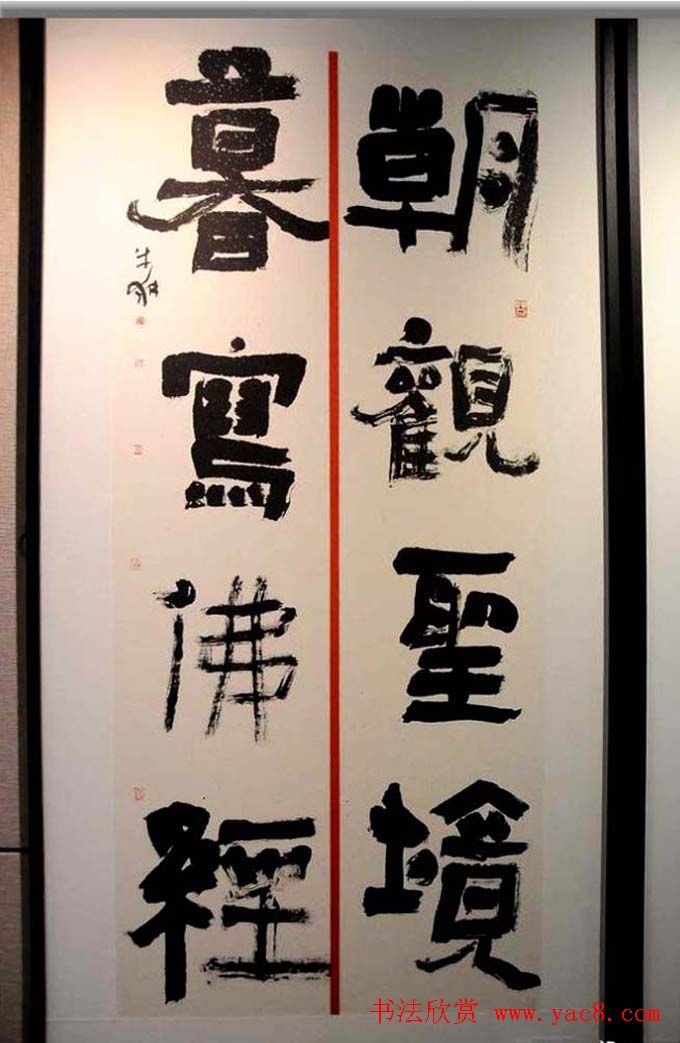 朝觀聖境
暮寫佛經
书法欣赏 www.yac8.com